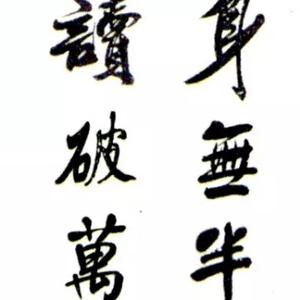 身無半
讀破萬